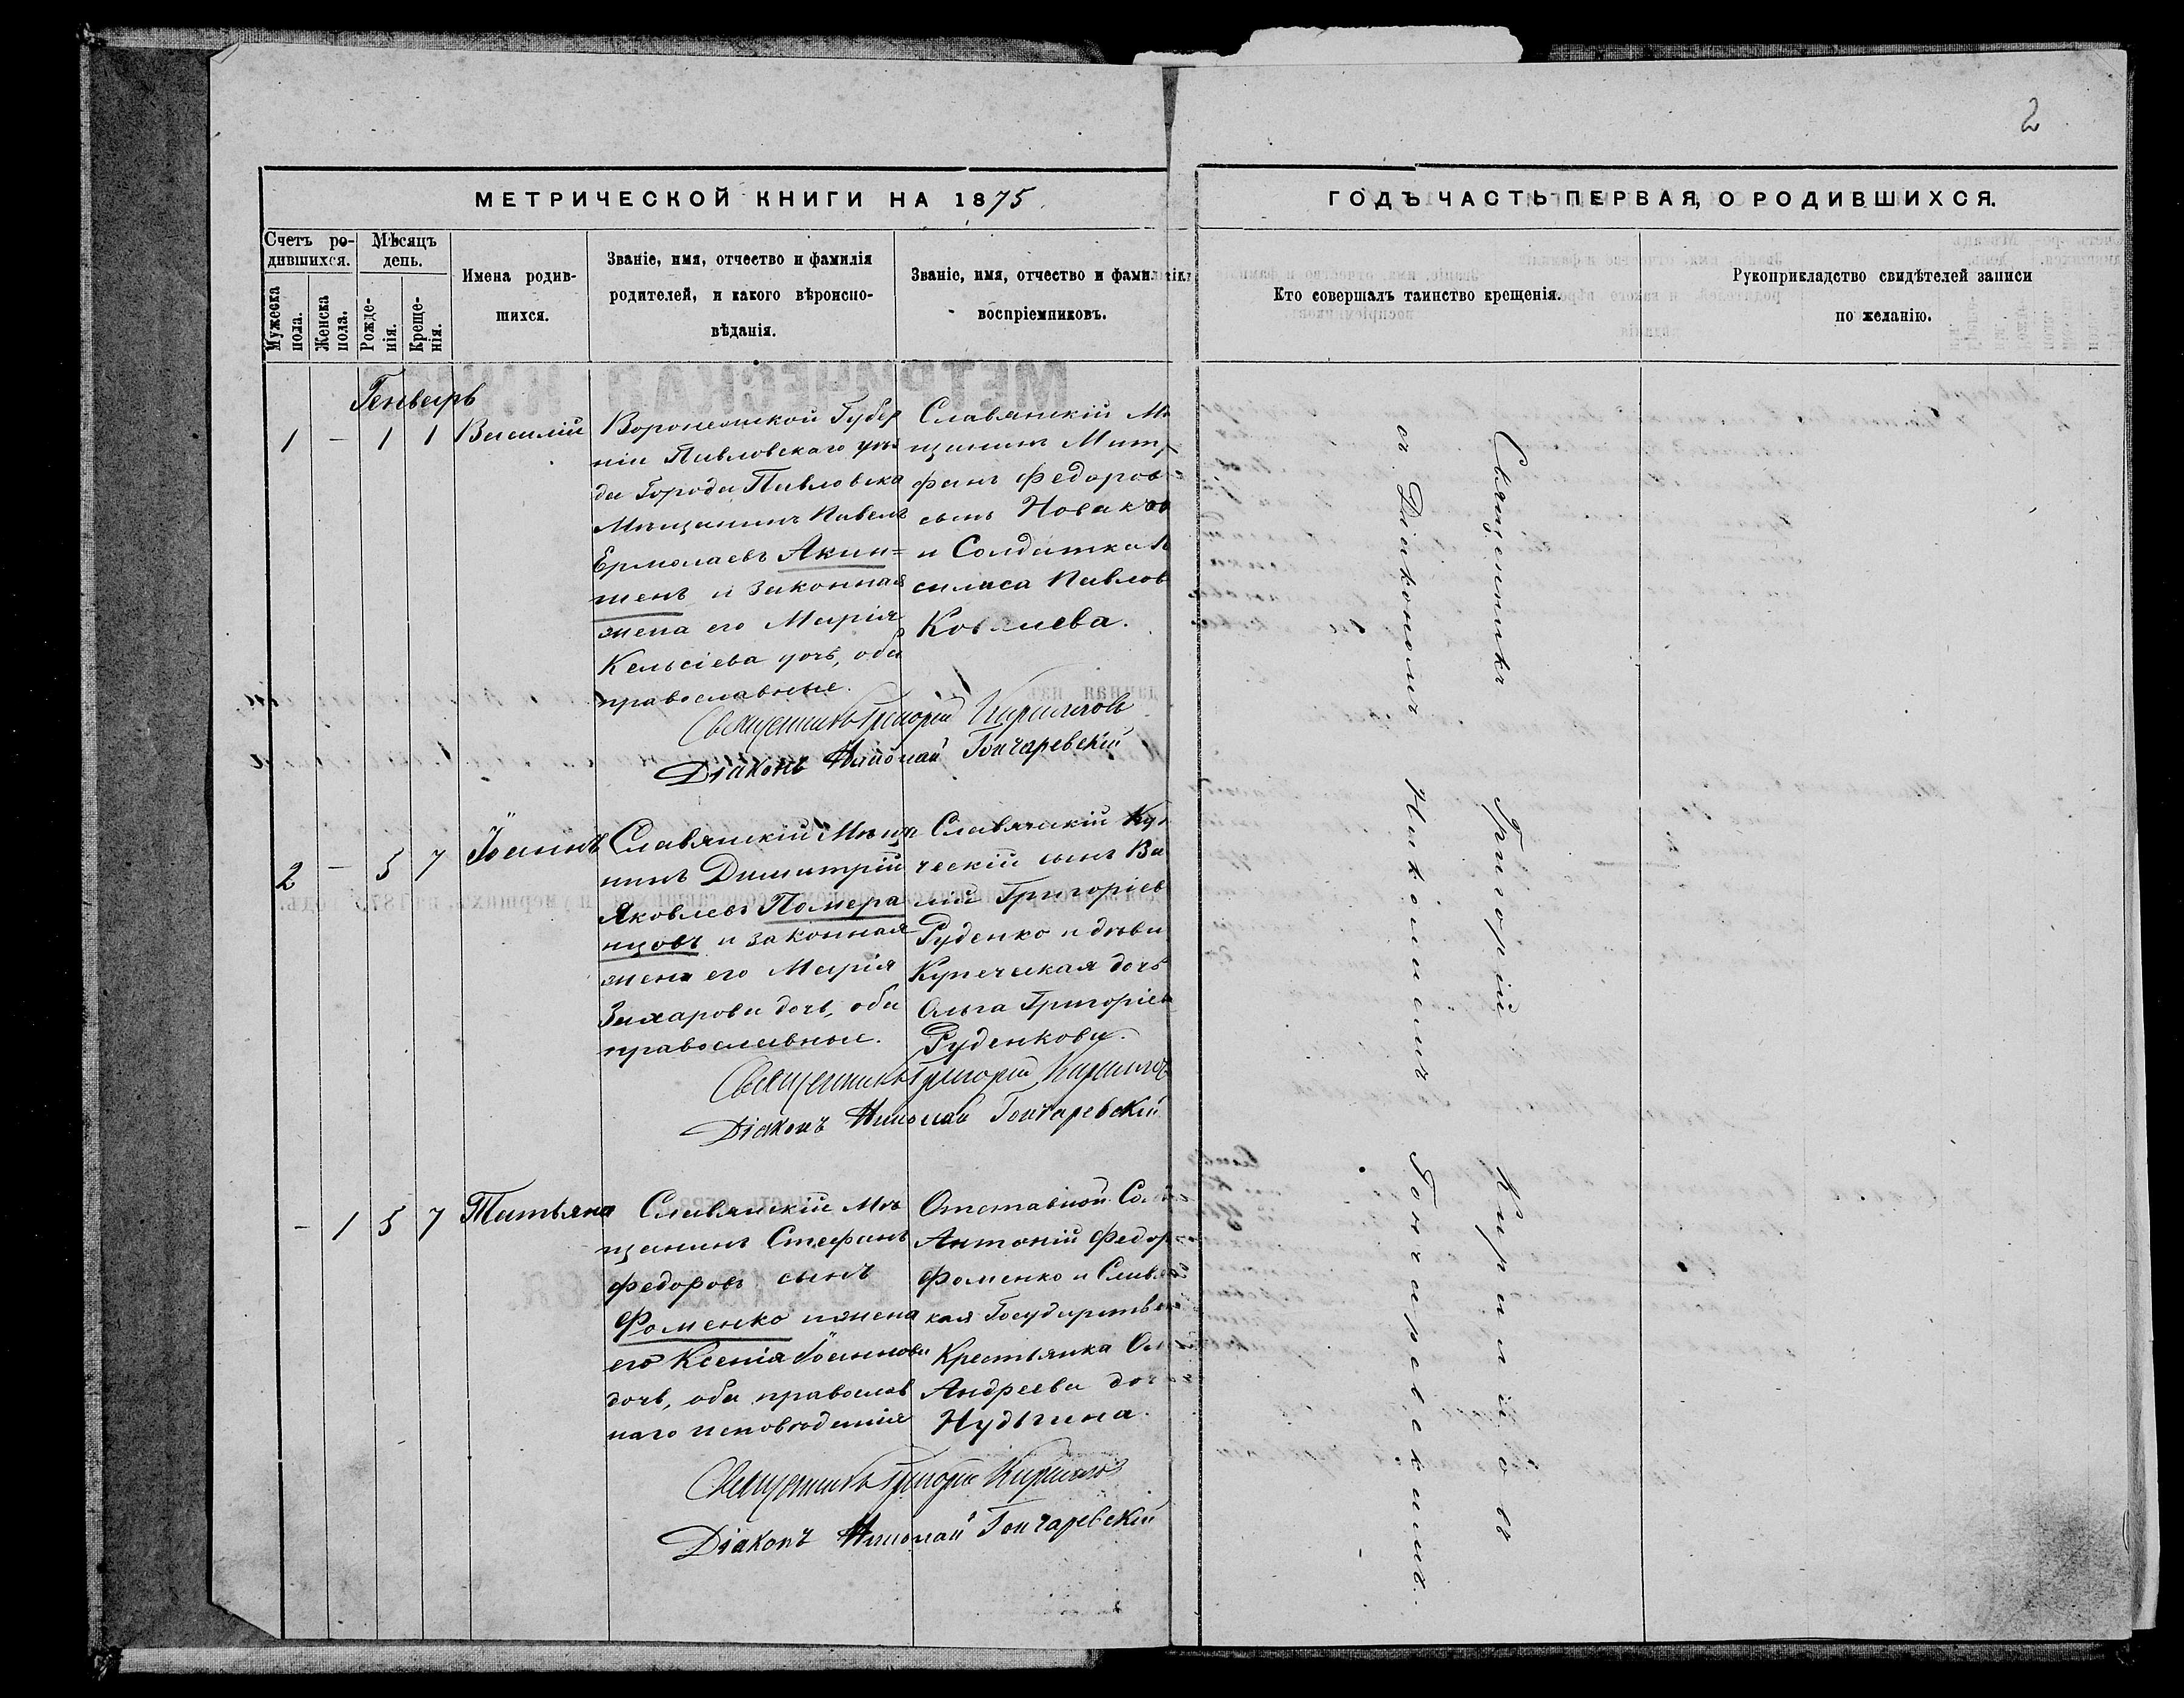 2
МЕТРИЧЕСКОЙ КНИГИ НА 1875
ГОДЪ ЧАСТЬ ПЕРВАЯ, О РОДИВШИХСЯ.
Счетъ ро-
дившихся.
Мужеска
пола.
Женска
пола.
Мѣсяцъ
день.
Рожде-
нія.
Креще-
нія.
Имена родив-
шихся.
Званіе, имя, отчество и фамилія
родителей, и какого вѣроиспо-
вѣданія.
Званіе, имя, отчество и фамилія
воспріемниковъ.
Кто совершалъ таинство крещенія.
Рукоприкладство свидѣтелей записи
по желанію.
Генварь
1 - 1 1 Василій
Воронежской Губер
ніи Павловскаго уѣз
да Города Павловска
Мѣщанинъ Павелъ
Ермолаевъ Акин=
шенъ и законная
жена его Марія
Кельсіева дочь, оба
православные.
Славянскій Мѣ
щанинъ Митр
фанъ Федоров
сынъ Новаков
и Солдатка
Павлов
Ковалева.
Священникъ Григорій Кириловъ
Діаконъ Николай Гончаревскій
2 - 5 7 Іоаннъ
Славянскій Мѣща
нинъ Димитрій
Яковлевъ Помера
нцовъ и законная
жена его Марія
Захарова дочь, оба
православные.
Славянскій Куп
ческій сынъ Ва
лій Григоріев
Руденко и дѣви
Купеческая дочь
Ольга Григоріев
Руденкова.
Священникъ Григорій Кириловъ
Діаконъ Николай Гончаревскій
- 1 5 7 Татьяна
Славянскій Мѣ
щанинъ Стефанъ
Федоровъ сынъ
Фоменко и жена
его Ксенія Іоаннова
дочь, оба православ
наго исповѣданія
Отставной Солд
Антоній Федор
Фоменко и Славян
кая Государствен
Крестьянка
Андреева доч
Нудьгина.
Священникъ Григорій Кириловъ
Діаконъ Николай Гончаревскій
Священникъ Григорій Кириловъ
съ Діакономъ Николаемъ Гончаревскимъ.